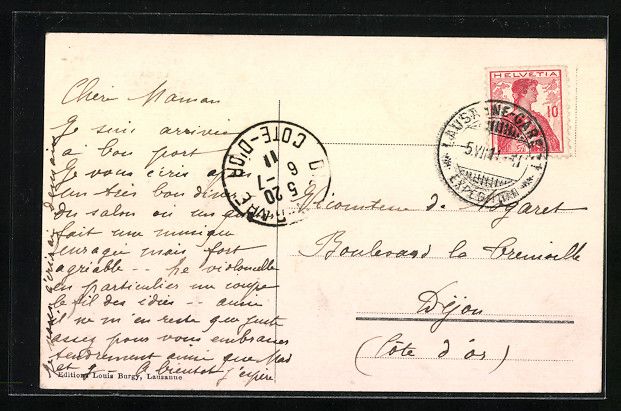 Chère Maman
Je suis arrivée
à bon port
Je vous écris après
un très bon dîner
du salon où un
fait une musique
enragée mais fort
agréable -- Le violoncelle
en particulier me coupe
le fil des idées -- aussi
il ne m'en reste que juste
assez pour vous embrasser
tendrement ainsi que
et
A bientôt j'espère
Editions Louis Burgy, Lausanne
HELVETIA
10
LAUSANNE-GARE
EXPEDITION
COTE-D'OR
11
6
5-7
20
Vicomtesse de
Boulevard la Tremouille
Dijon
(Côte d'or)